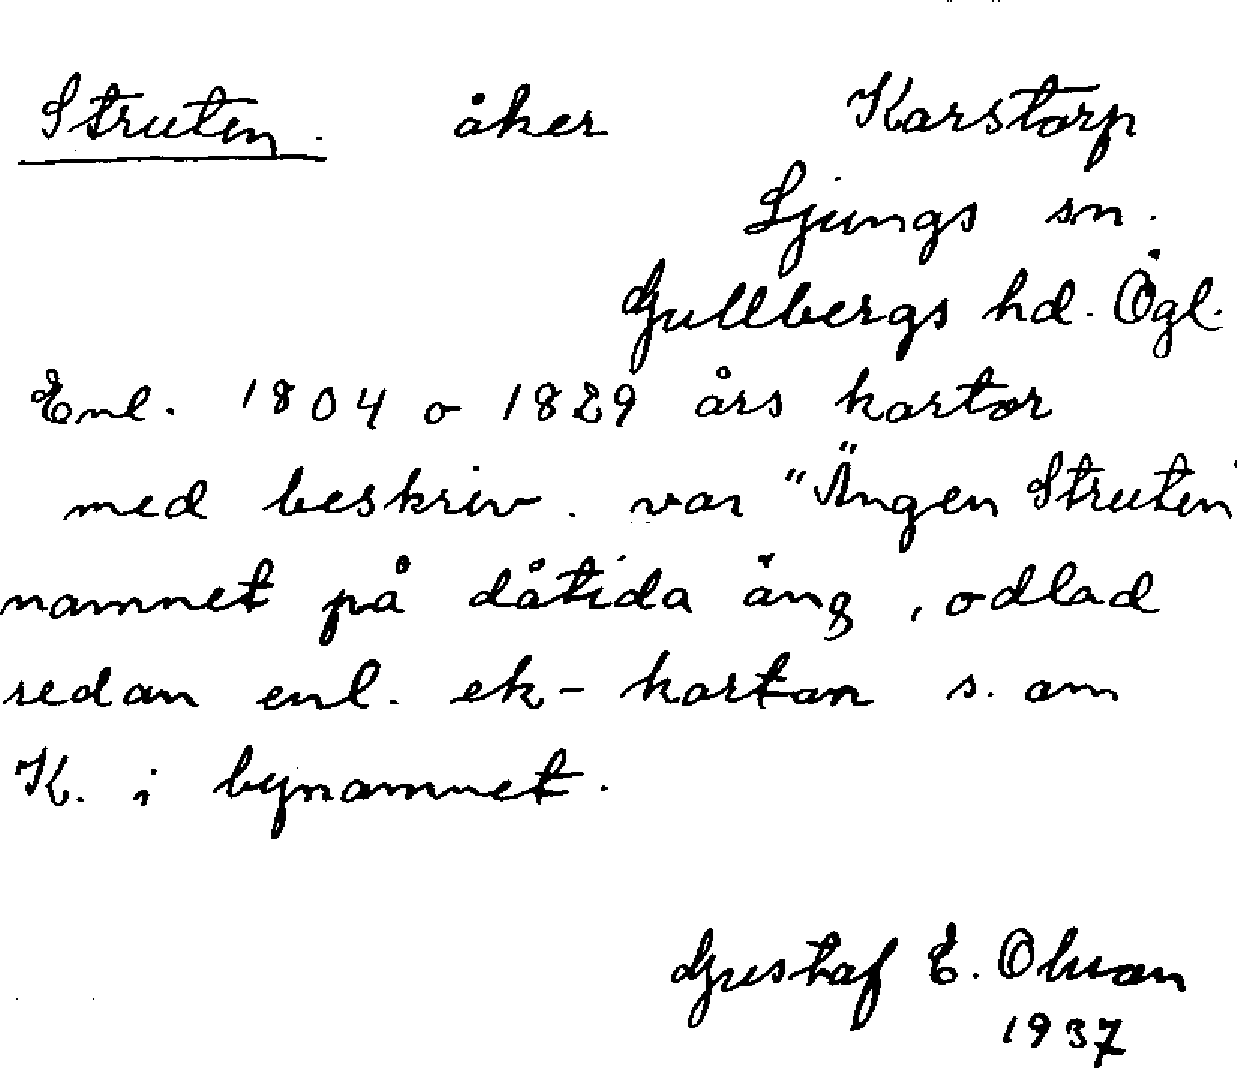 Struten. åker Karstorp
Ljungs sn.
Gullbergs hd. Ögl.
Enl. 1804 o 1829 års kartor
med beskriv. var "Ängen Struten"
namnet på dåtida äng, odlad
sedan enl. ek-kartan s. om
K. i bynamnet.
Gustaf E. Olsson
1937